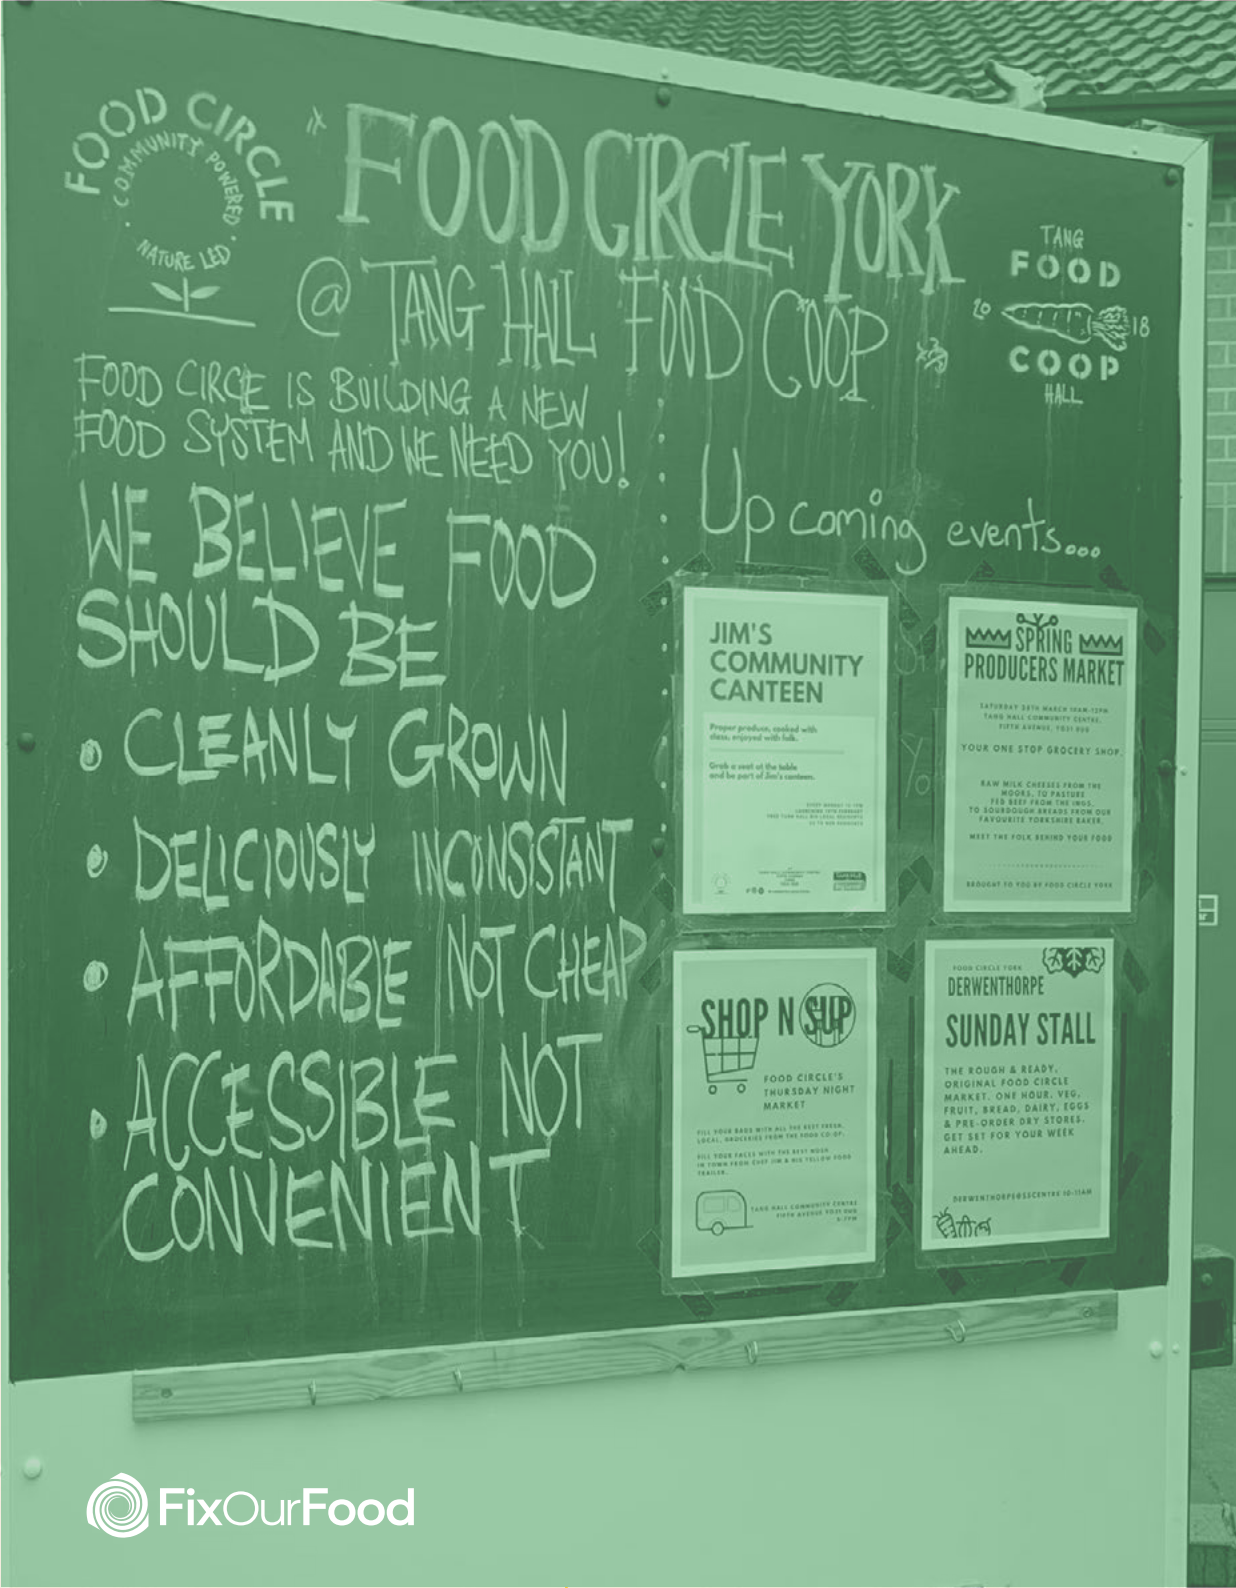 FOOD CIRCLE
COMMUNITY POWERED
NATURE LED
FOOD CIRCLE YORK
@ TANG HALL FOOD COOP
TANG
FOOD
20 18
COOP
HALL
FOOD CIRCLE IS BUILDING A NEW
FOOD SYSTEM AND WE NEED YOU!
WE BELIEVE FOOD
SHOULD BE
• CLEANLY GROWN
• DELICIOUSLY INCONSISTANT
• AFFORDABLE NOT CHEAP
• ACCESSIBLE NOT
CONVENIENT
Up coming events...
JIM'S
COMMUNITY
CANTEEN
Proper produce, cooked with
class, enjoyed with folk.
Grab a seat at the table
and be part of Jim's canteen.
SPRING
PRODUCERS MARKET
TANG HALL COMMUNITY CENTRE,
FIFTH AVENUE, YO31 0UG
YOUR ONE STOP GROCERY SHOP.
RAW MILK CHEESES FROM THE
MOORS, TO PASTURE
FED BEEF FROM THE INGS,
TO SOURDOUGH BREADS FROM OUR
FAVOURITE YORKSHIRE BAKER.
MEET THE FOLK BEHIND YOUR FOOD
BROUGHT TO YOU BY FOOD CIRCLE YORK
SHOP N SUP
FOOD CIRCLE'S
THURSDAY NIGHT
MARKET
FILL YOUR BAGS WITH ALL THE BEST FRESH,
LOCAL, GROCERIES FROM THE FOOD CO-OP.
FILL YOUR FACES WITH THE BEST NOSH
IN TOWN FROM CHEF JIM & HIS YELLOW FOOD
TRAILER.
TANG HALL COMMUNITY CENTRE
FIFTH AVENUE YO31 0UG
FOOD CIRCLE YORK
DERWENTHORPE
SUNDAY STALL
THE ROUGH & READY,
ORIGINAL FOOD CIRCLE
MARKET. ONE HOUR. VEG,
FRUIT, BREAD, DAIRY, EGGS
& PRE-ORDER DRY STORES.
GET SET FOR YOUR WEEK
AHEAD.
DERWENTHORPE@SSCENTRE 10-11AM
FixOurFood